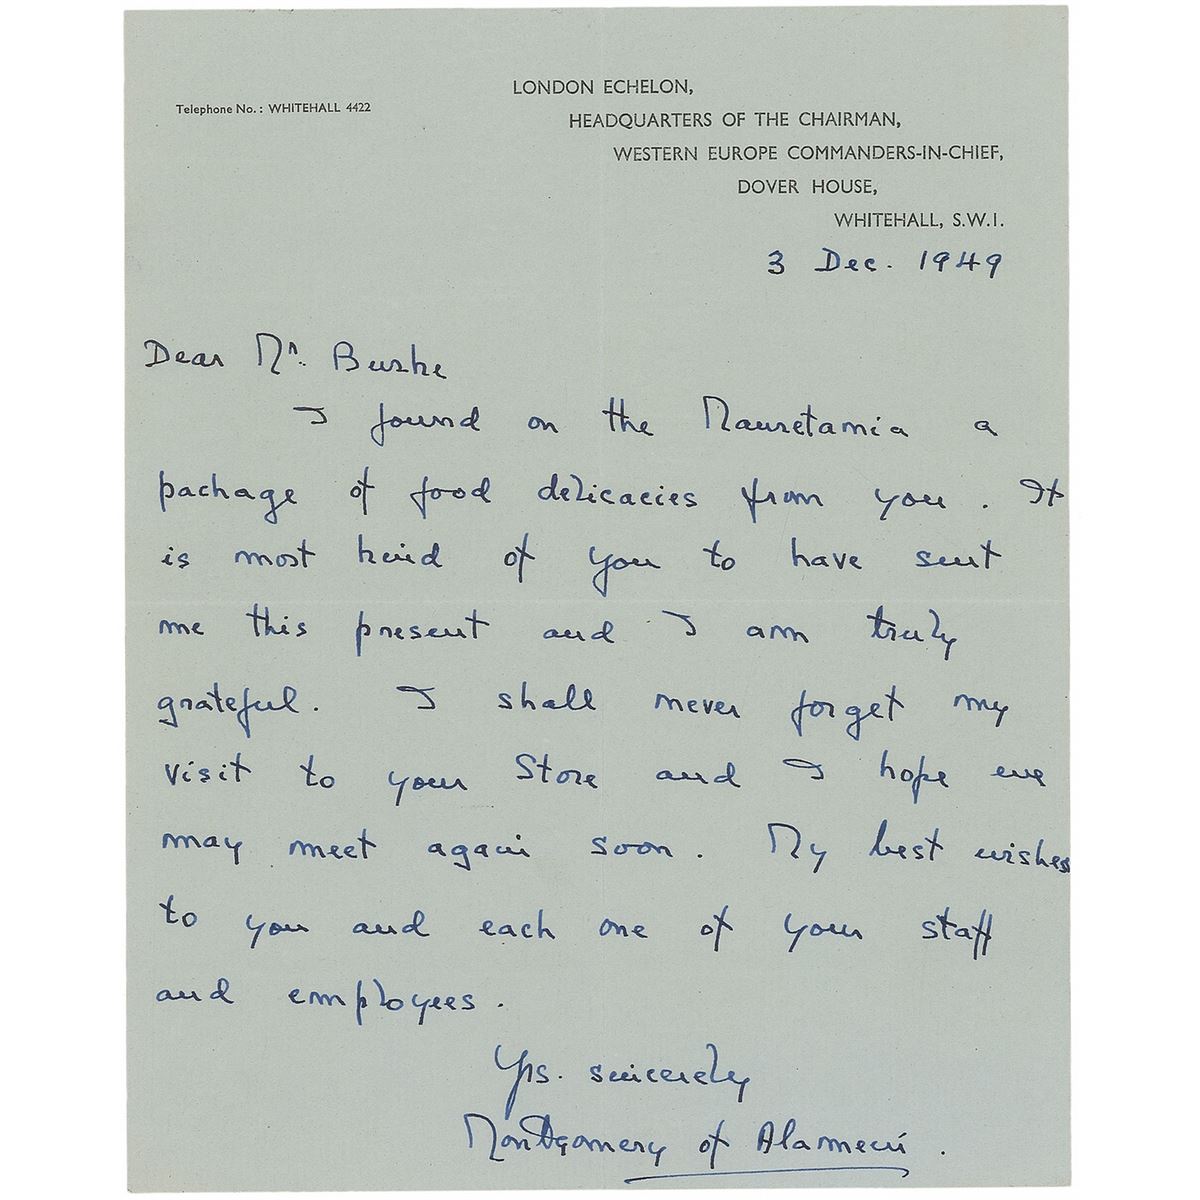 Telephone No.: WHITEHALL 4422
LONDON ECHELON,
HEADQUARTERS OF THE CHAIRMAN,
WESTERN EUROPE COMMANDERS-IN-CHIEF,
DOVER HOUSE,
WHITEHALL, S.W.I.
3 Dec. 1949
Dear Mr. Burke
I found on the Mauretania a
package of food delicacies from you. It
is most kind of you to have sent
me this present and I am truly
grateful. I shall never forget my
visit to your Store and I hope we
may meet again soon. My best wishes
to you and each one of your staff
and employees.
Yrs. sincerely
Montgomery of Alamein.